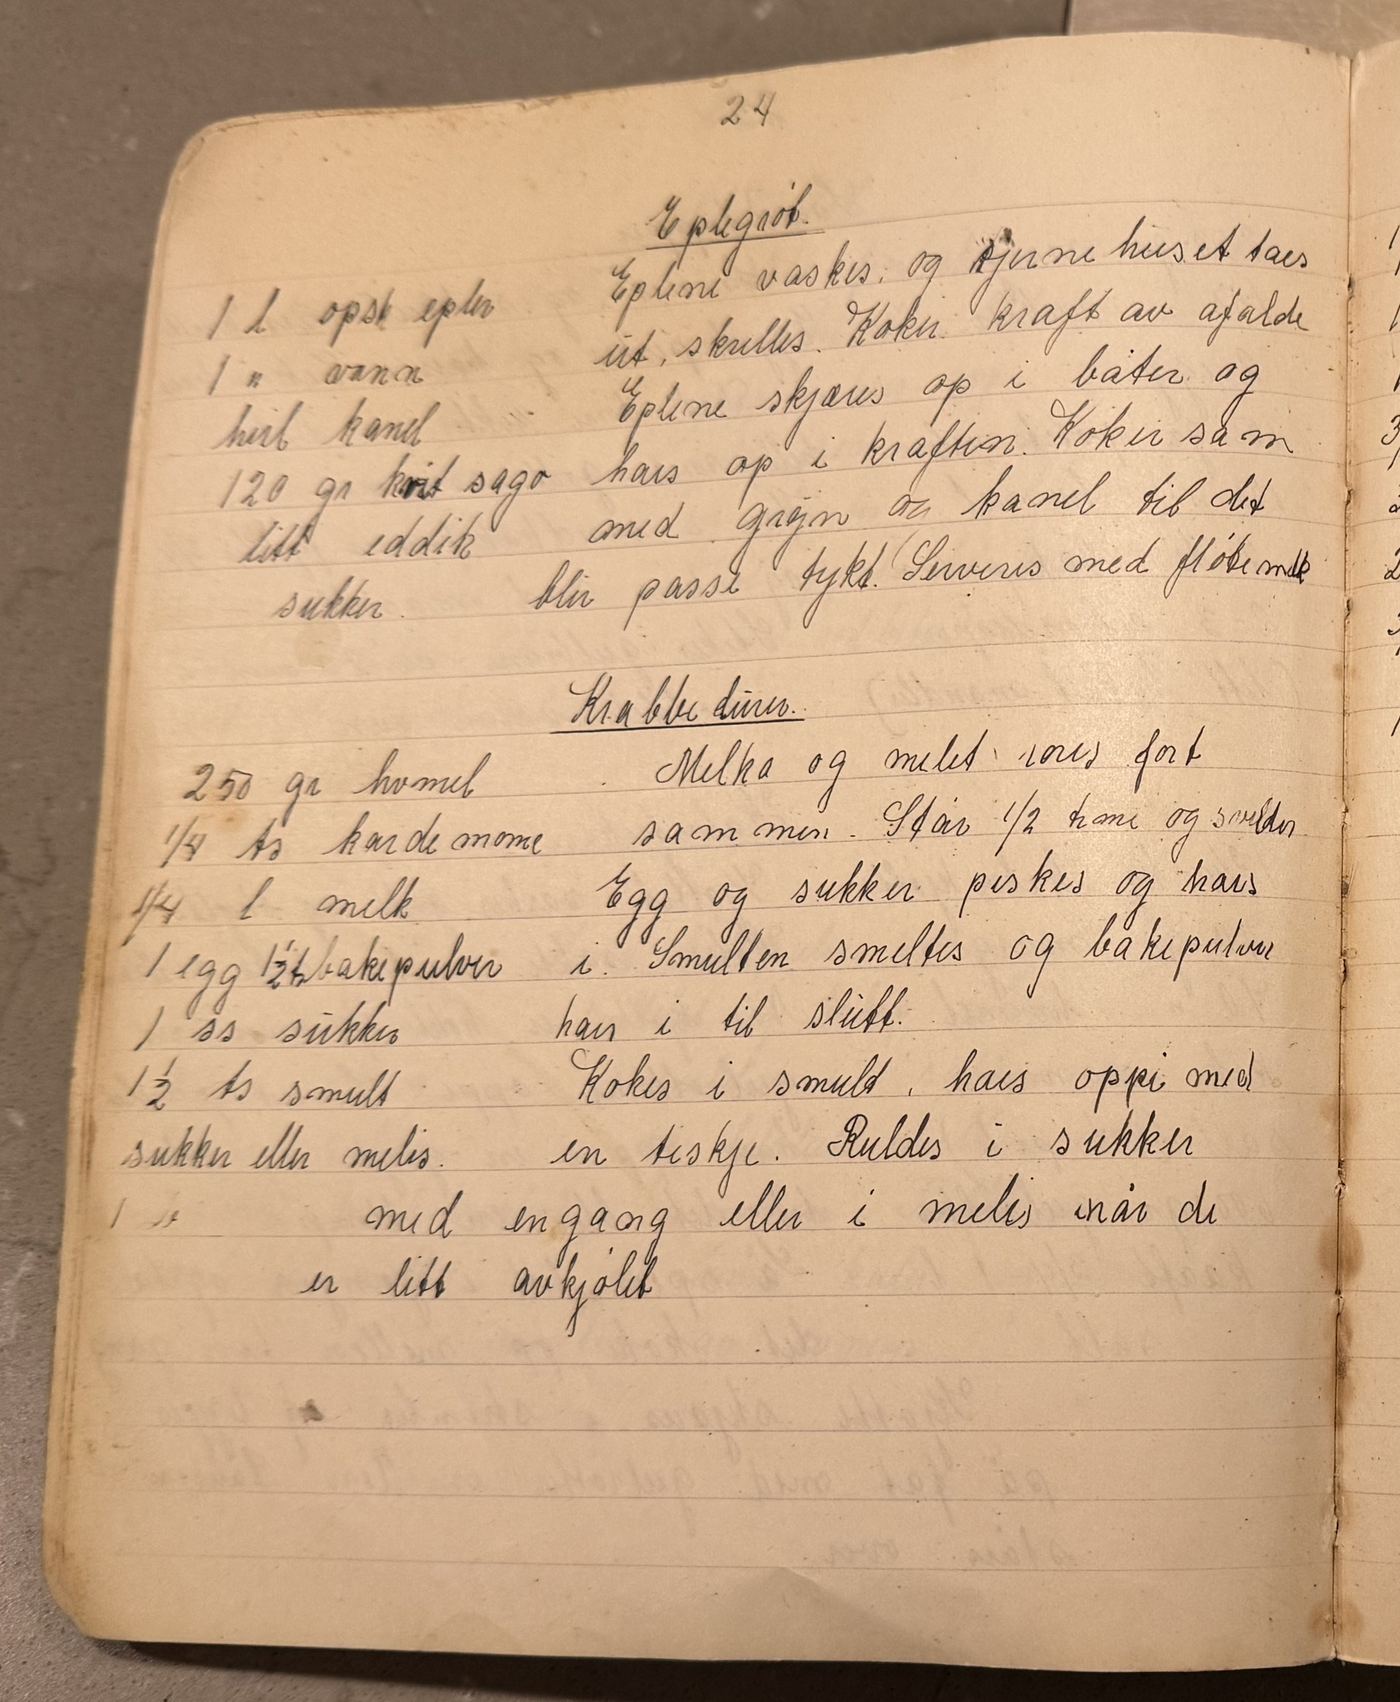 24
Eplegrøt.
1 l opsk epler
1 " vann
heil kanel
120 gr kvit sago
litt eddik
sukker.
Eplene vaskes, og kjernehuset taes
ut, skrelles. Koker kraft av afalde
Eplene skjæres op i båter og
haes op i kraften. Koker sam
med grøyn og kanel til det
blir passe tykt. Serveres med fløtemelk
Krabbedurer.
250 gr hvmel
1/4 ts kardemome
1/4 l melk
1 egg 1½ ts bakepulver
1 ss sukker
1½ ts smult
sukker eller melis.
Melka og melet røres fort
sammen. Står 1/2 time og sveller
Egg og sukker piskes og haes
i. Smulten smeltes og bakepulver
haes i til slutt.
Kokes i smult, haes oppi med
en teskje. Ruldes i sukker
med engang eller i melis når de
er litt avkjølet